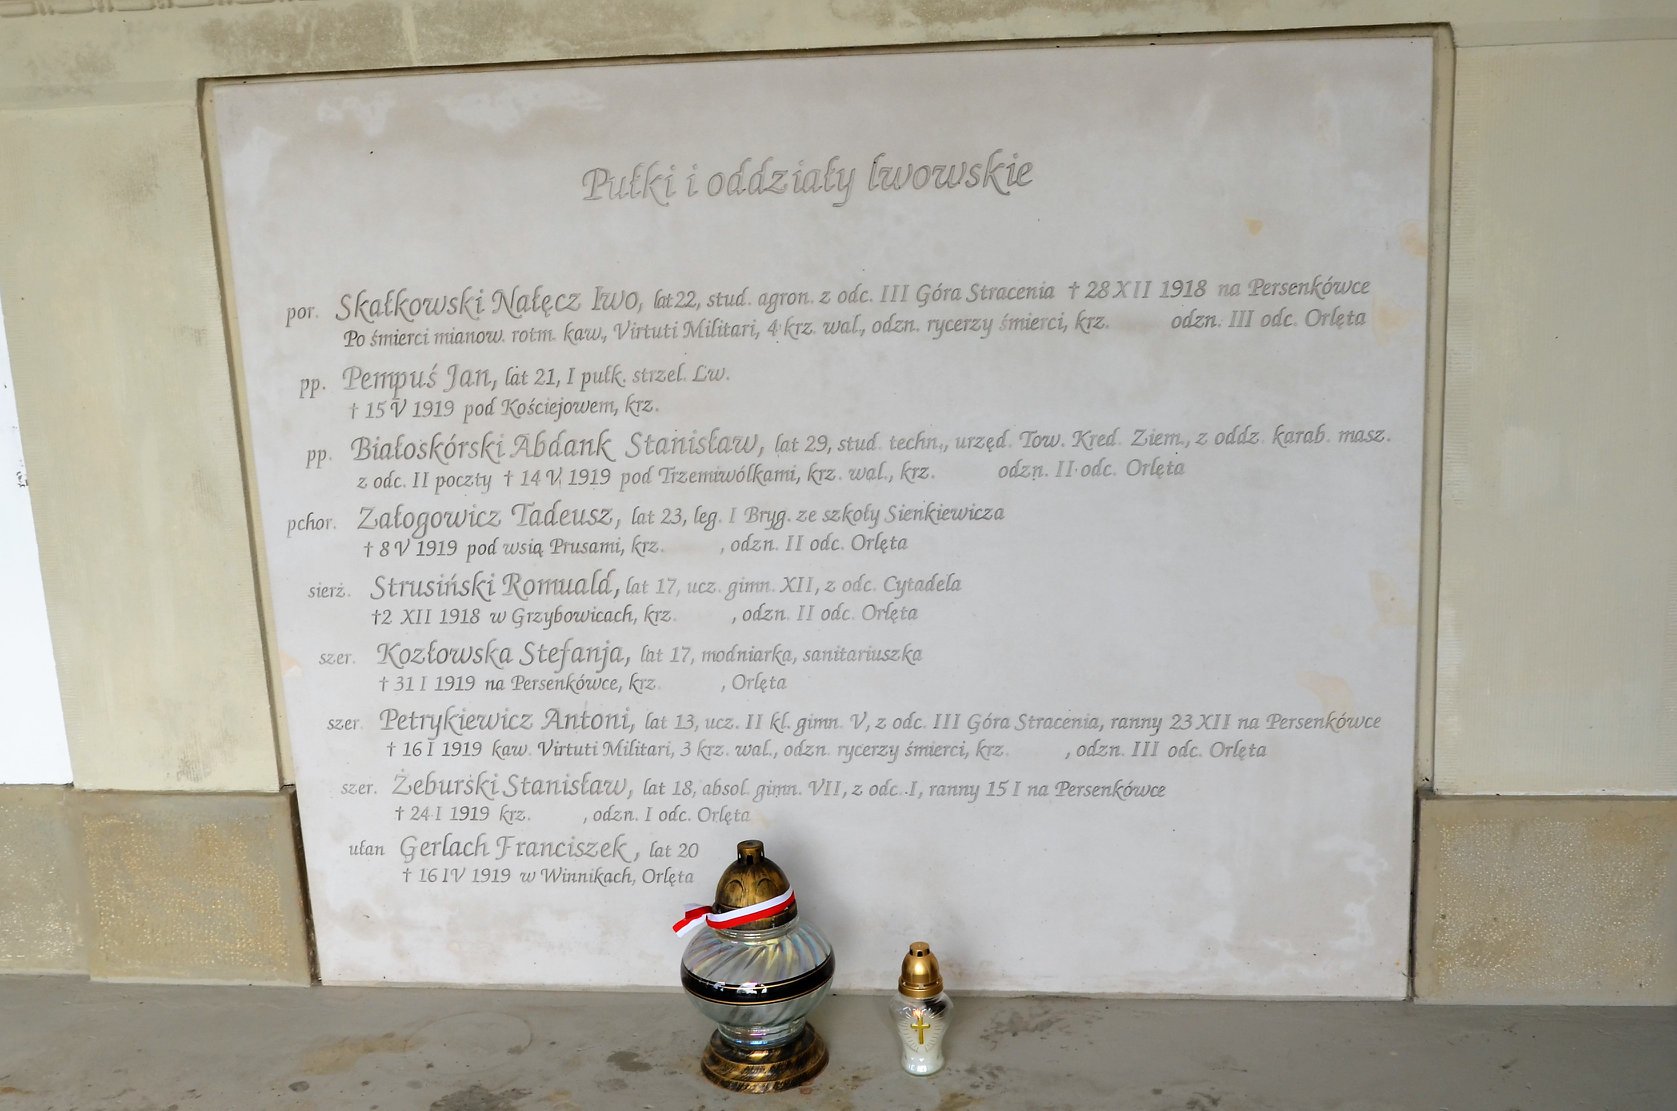 Pułki i oddziały lwowskie
por. Skałkowski Nałęcz Iwo, lat 22, stud. agron. z odc. III Góra Stracenia † 28 XII 1918 na Persenkówce
Po śmierci mianow. rotm. kaw., Virtuti Militari, 4 krz. wal., odzn. rycerzy śmierci, krz. odzn. III odc. Orlęta
pp. Pempuś Jan, lat 21, I pułk. strzel. Lw.
† 15 V 1919 pod Kościejowem, krz.
pp. Białoskórski Abdank Stanisław, lat 29, stud. techn., urzęd. Tow. Kred. Ziem., z oddz. karab. masz.
z odc. II poczty † 14 V 1919 pod Trzemiwólkami, krz. wal., krz. odzn. II odc. Orlęta
pchor. Załogowicz Tadeusz, lat 23, leg. I Bryg. ze szkoły Sienkiewicza
† 8 V 1919 pod wsią Prusami, krz. , odzn. II odc. Orlęta
sierż. Strusiński Romuald, lat 17, ucz. gimn. XII, z odc. Cytadela
†2 XII 1918 w Grzybowicach, krz. , odzn. II odc. Orlęta
szer. Kozłowska Stefanja, lat 17, modniarka, sanitariuszka
† 31 I 1919 na Persenkówce, krz. , Orlęta
szer. Petrykiewicz Antoni, lat 13, ucz. II kl. gimn. V, z odc. III Góra Stracenia, ranny 23 XII na Persenkówce
† 16 I 1919 kaw. Virtuti Militari, 3 krz. wal., odzn. rycerzy śmierci, krz. , odzn. III odc. Orlęta
szer. Żeburski Stanisław, lat 18, absol. gimn. VII, z odc. I, ranny 15 I na Persenkówce
† 24 I 1919 krz. , odzn. I odc. Orlęta
ułan Gerlach Franciszek, lat 20
† 16 IV 1919 w Winnikach, Orlęta